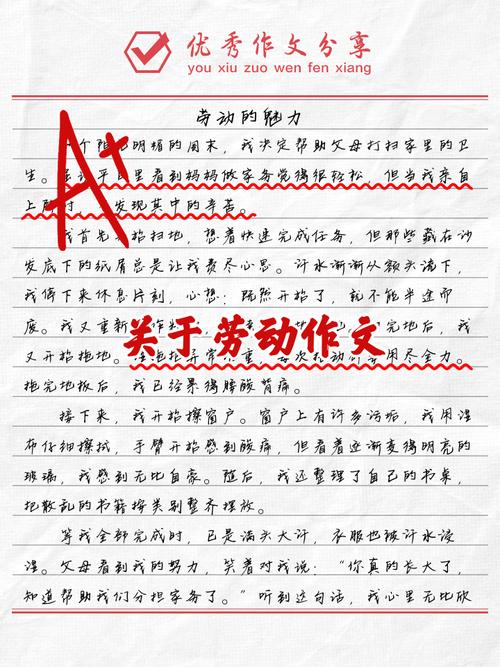 优秀作文分享
you xiu zuo wen fen xiang
劳动的魅力
A+
个阳光明媚的周末，我决定帮助父母打扫家里的卫
生。虽说平日里看到妈妈做家务觉得很轻松，但当我亲自
上阵时，发现其中的辛苦。
我首先开始扫地，想着快速完成任务，但那些藏在沙
发底下的纸屑总是让我费尽心思。汗水渐渐从额头流下，
我停下来休息片刻，心想：既然开始了，就不能半途而
废。我又重新
完地后，我
关于劳动作文
又开始拖地。用尽全力。
拖完地板后，我已经累得腰酸背痛。
接下来，我开始擦窗户。窗户上有许多污垢，我用湿
布仔细擦拭，手臂开始感到酸痛，但看着逐渐变得明亮的
玻璃，我感到无比自豪。随后，我还整理了自己的书桌，
把散乱的书籍按类别整齐摆放。
等我全部完成时，已是满头大汗，衣服也被汗水浸
湿。父母看到我的努力，笑着对我说：“你真的长大了，
知道帮助我们分担家务了。”听到这句话，我心里无比欣